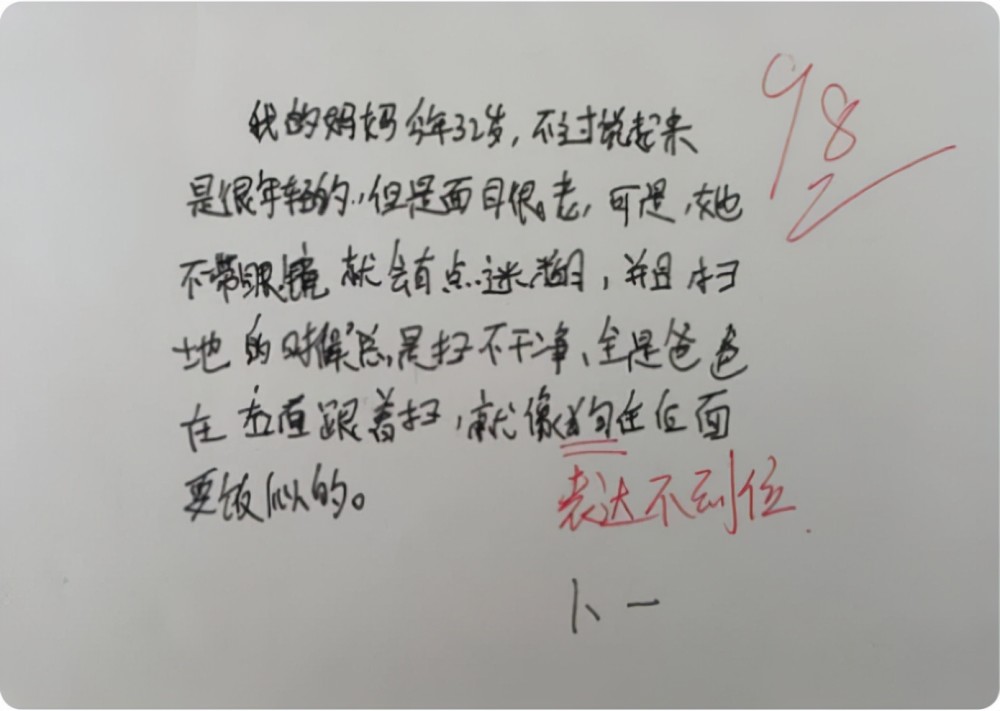 98
我的妈妈今年32岁，不过说起来
是很年轻的，但是面目很老，可是，她
不带眼镜就会有点迷糊，并且扫
地的时候总是扫不干净、全是爸爸
在后面跟着扫，就像狗在后面
要饭似的。
表达不到位.